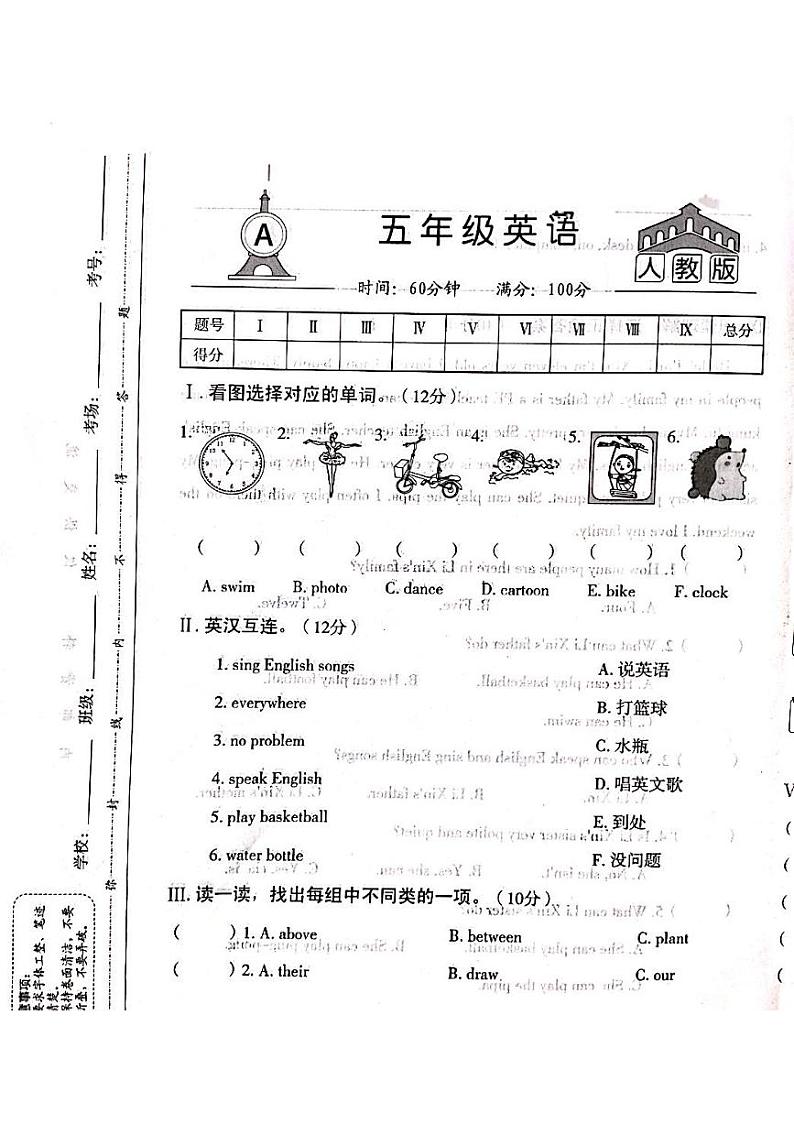 A
五年级英语
人教版
时间：60分钟 满分：100分
题号 Ⅰ Ⅱ Ⅲ Ⅳ Ⅴ Ⅵ Ⅶ Ⅷ Ⅸ 总分
得分
Ⅰ.看图选择对应的单词。（12分）
1. 2. 3. 4. 5. 6.
( ) ( ) ( ) ( ) ( ) ( )
A. swim B. photo C. dance D. cartoon E. bike F. clock
Ⅱ.英汉互连。（12分）
1. sing English songs A. 说英语
2. everywhere B. 打篮球
3. no problem C. 水瓶
4. speak English D. 唱英文歌
5. play basketball E. 到处
6. water bottle F. 没问题
Ⅲ.读一读，找出每组中不同类的一项。（10分）
( ) 1. A. above B. between C. plant
( ) 2. A. their B. draw C. our
学校： 班级： 姓名： 考场： 考号：
弥 封 线 内 不 得 答 题
意事项：
要求字体工整、笔迹
清楚。
保持卷面清洁，不要
折叠，不要弄破。